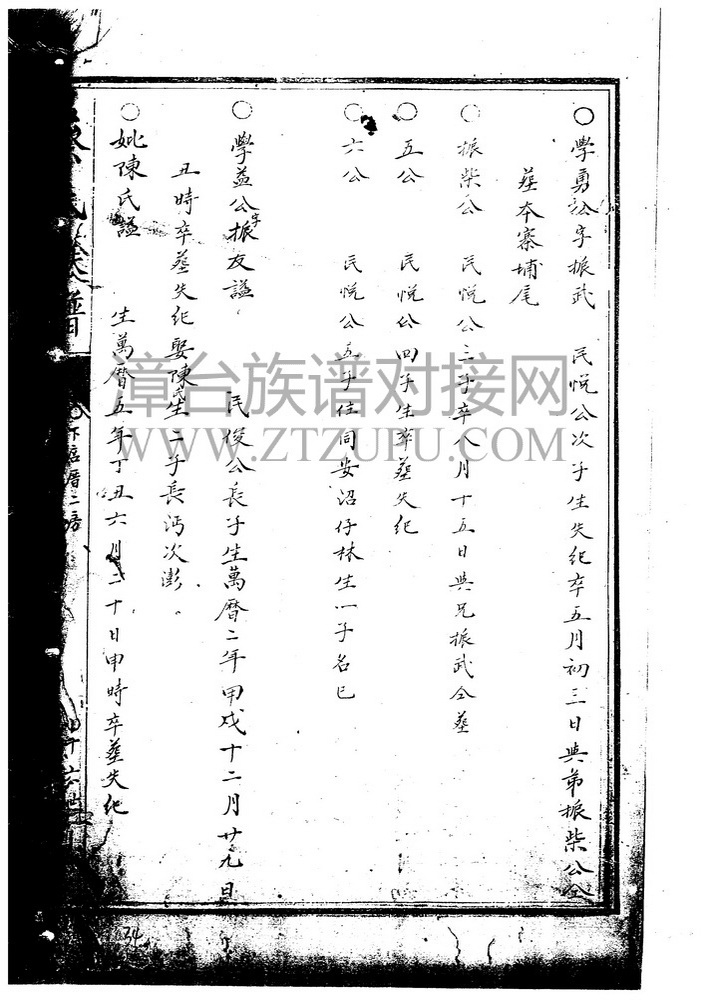 ○學勇公字振武 民悅公次子生失紀卒五月初三日與弟振柴公仝
葬本寨埔尾
○振柴公 民悅公三子卒八月十五日與兄振武仝葬
○五公 民悅公四子生卒葬失紀
○六公 民悅公五子住同安沼仔林生一子名巳
○學益公字振友謚 民俊公長子生萬曆二年甲戌十二月廿九日
丑時卒葬失紀娶陳氏生二子長沔次澎。
○妣陳氏謚 生萬曆五年丁丑六月二十日申時卒葬失紀
34
漳台族谱对接网
WWW.ZTZUPU.COM